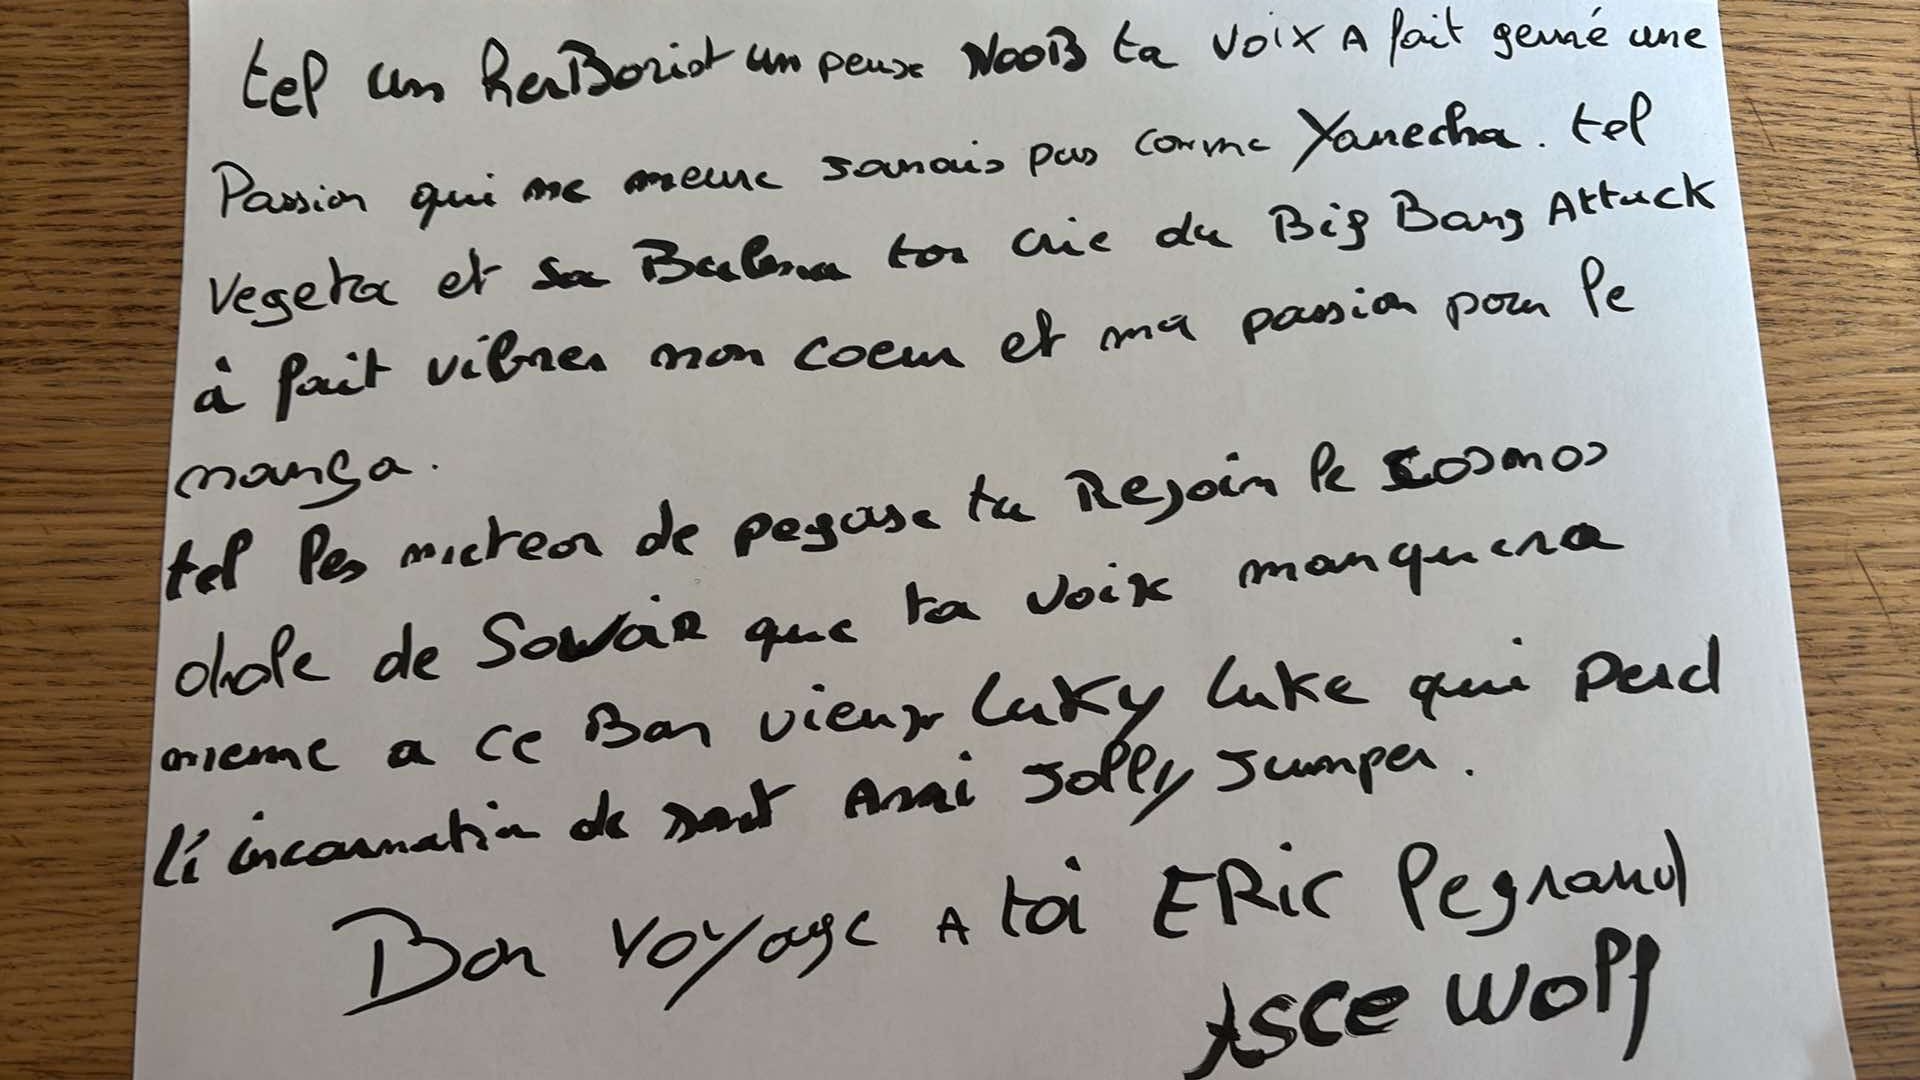 tel un herBorist un peuse NooB ta voix A fait germé une
Passion qui me meure Jamais pas comme Yamecha. tel
Vegeta et sa Bulma ton crie du Big Bang Attack
à fait vibrer mon coeur et ma passion pour le
manga.
tel les meteor de pegase tu Rejoin le cosmos
drole de Savoir que ta voix manquera
meme a ce Bon vieux Luky Luke qui perd
l'incarnation de Ami Jolly Jumper.
Bon Voyage A toi ERic legrand
Asce Wolf